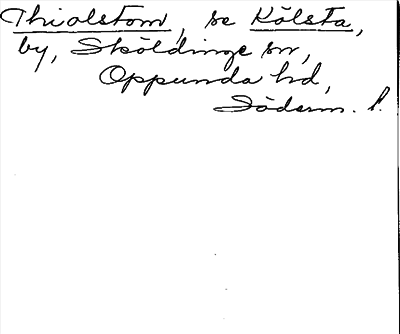 Thiolstom, se Kölsta,
by, Sköldinge sn,
Oppunda hd,
Söderm. l.